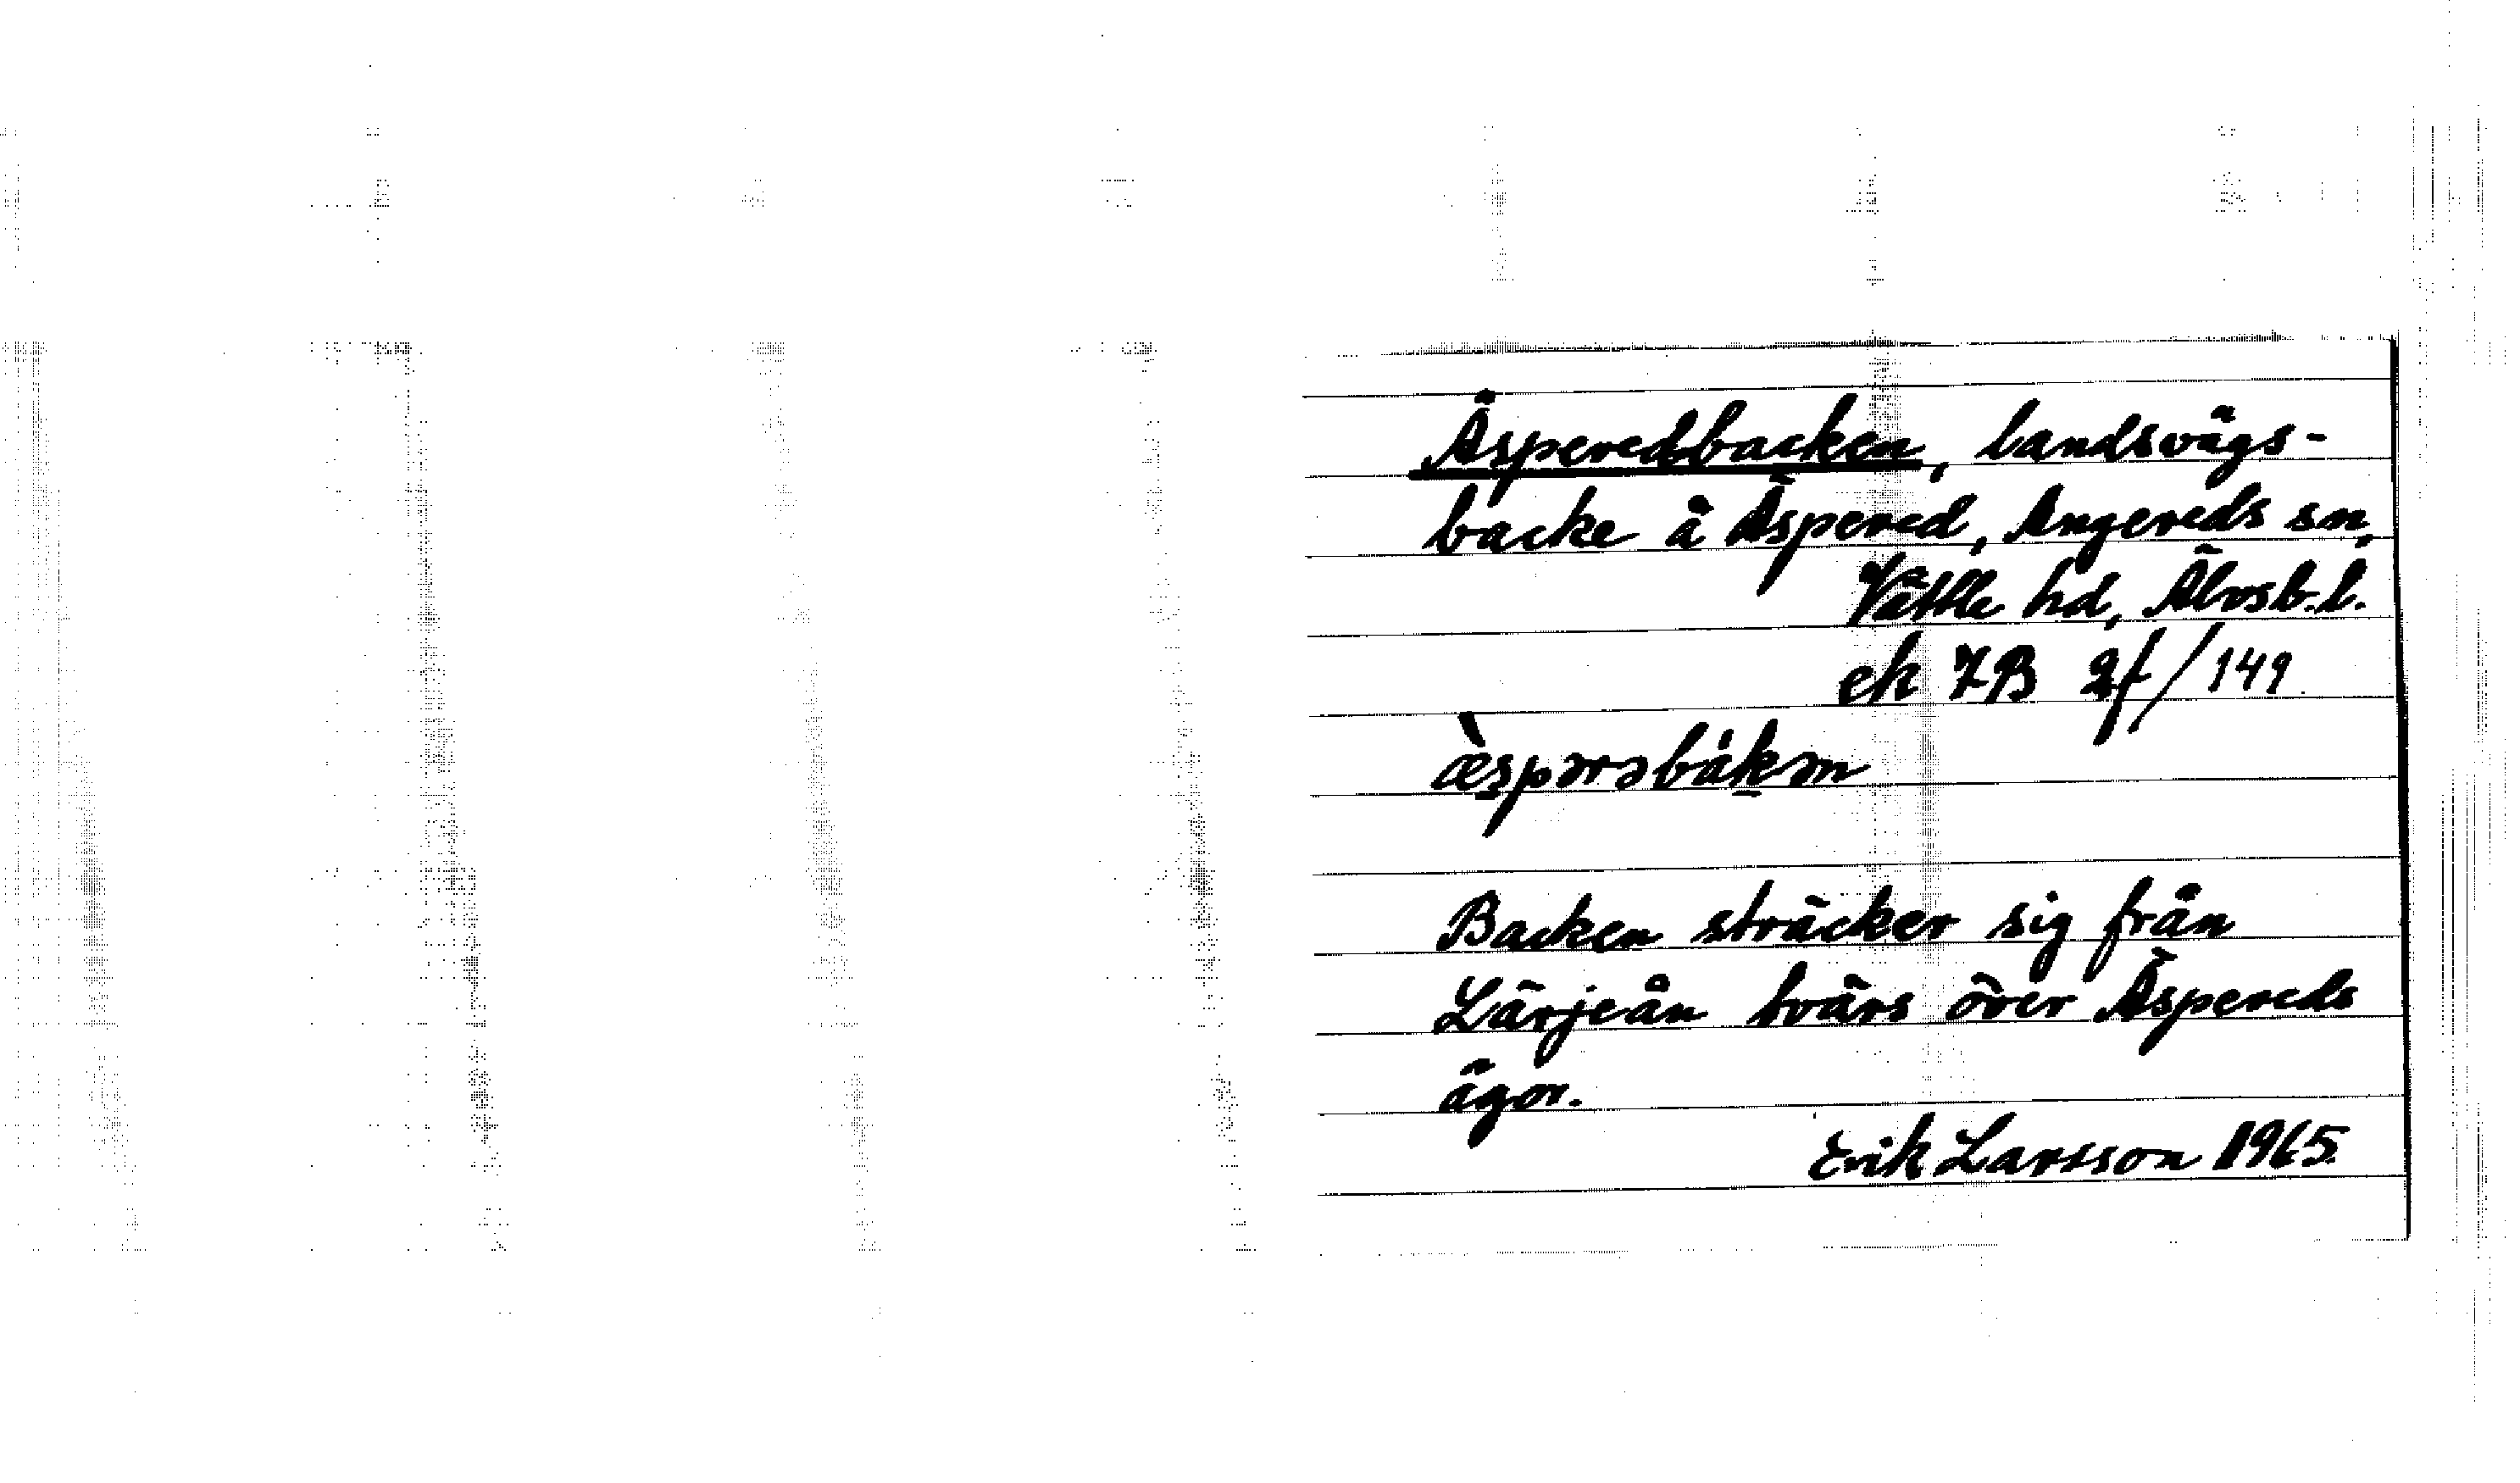 Äsperedbacken, landsvägs-
backe å Äspered, Angereds sn,
Vättle hd, Älvsb.l.
ek 7B 2f/149
æ̀spərəbákən
Backen sträcker sig från
Lärjeån tvärs över Äspereds
ägor.
Erik Larsson 1965.